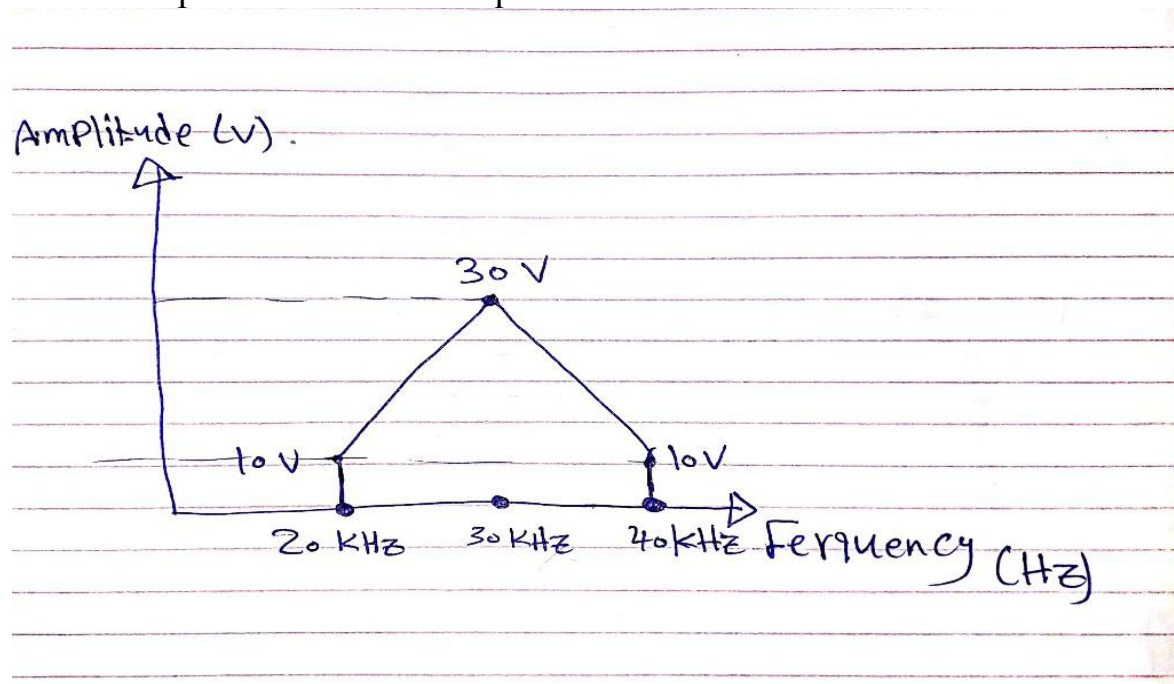 Amplitude (V).
30 V
10 V
10V
20 KHz 30 KHz 40KHz Ferquency (Hz)